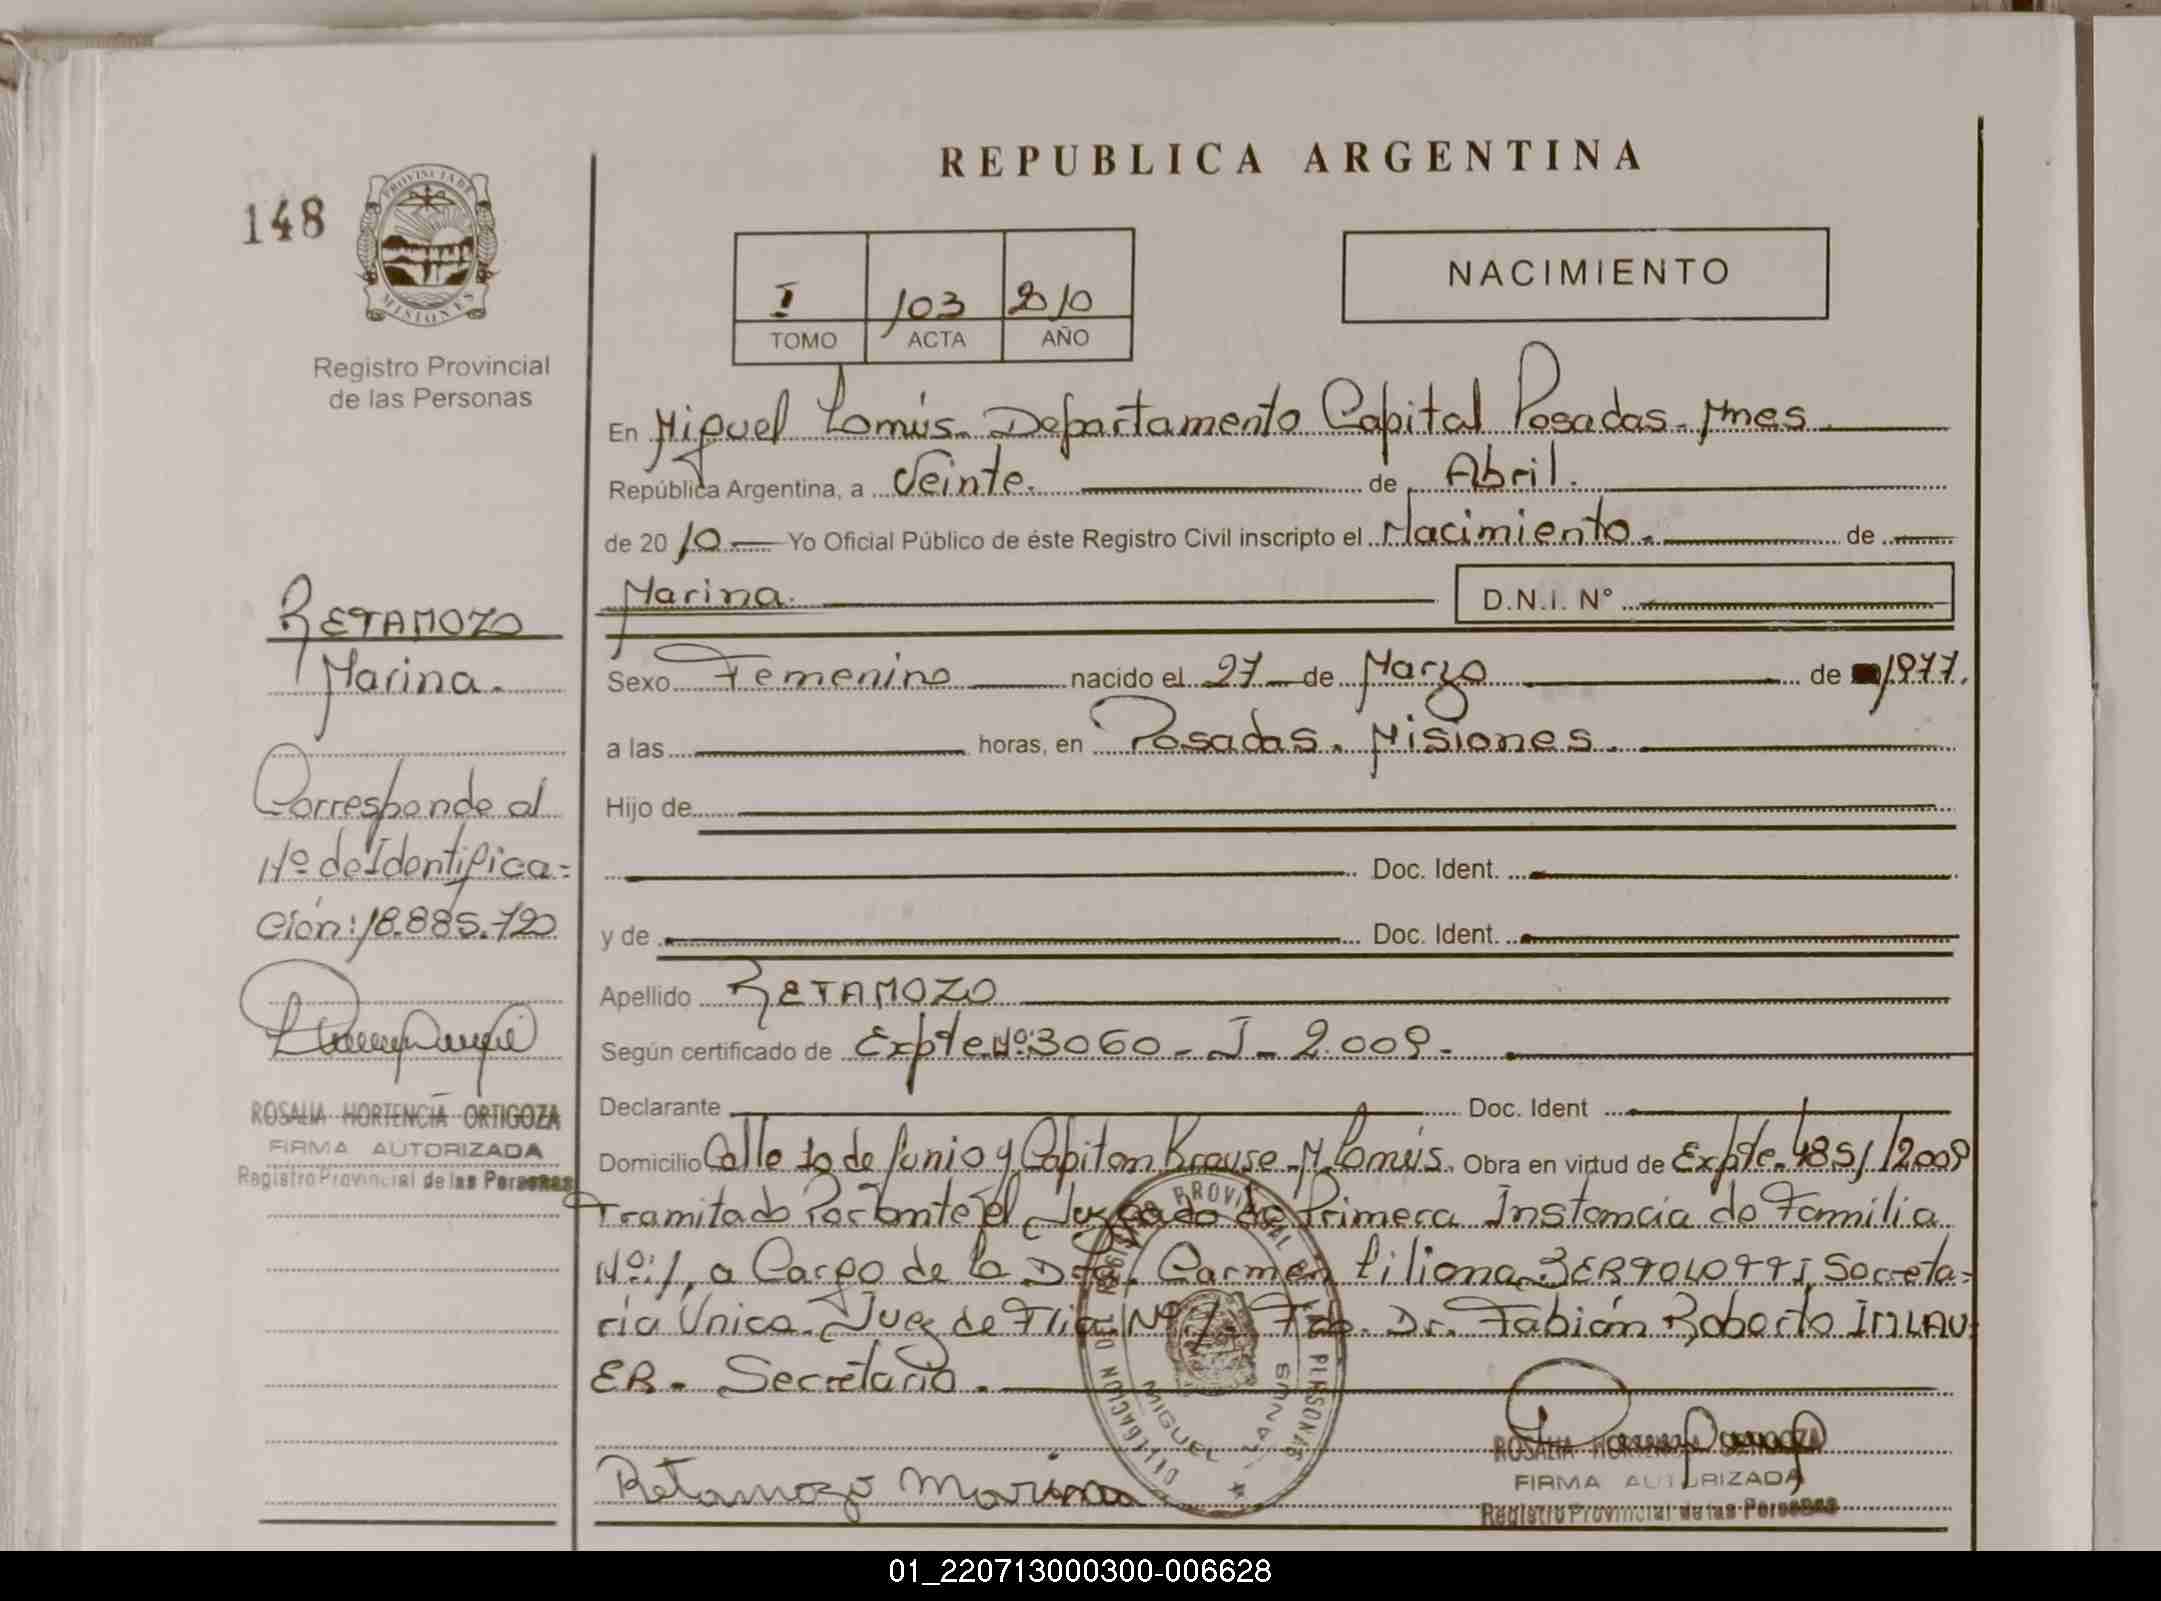 REPUBLICA ARGENTINA
148
PROVINCIA DE
MISIONES
Registro Provincial
de las Personas
I 103 2010
TOMO ACTA AÑO
NACIMIENTO
En Miguel Lanús. Departamento Capital Posadas. Mnes
República Argentina, a Veinte. de Abril.
de 20 10 Yo Oficial Público de éste Registro Civil inscripto el Nacimiento. de
Marina. D.N.I. Nº
Sexo Femenino nacido el 27 de Marzo de 1977.
a las horas, en Posadas. Misiones.
Hijo de
Doc. Ident.
y de Doc. Ident.
Apellido RETAMOZO
Según certificado de Expte Nº: 3060 - J - 2.009.
Declarante Doc. Ident
Domicilio Calle 10 de Junio y Capitan Krause. M. Lanús. Obra en virtud de Expte. 485/2009
Tramitado Por ante el Juzgado de Primera Instancia de Familia
Nº: 1, a Cargo de la Dra. Carmen Liliana BERTOLOTTI, Secreta=
ría Unica. Juez de Flia. Nº 1. Fdo. Dr. Fabián Roberto IMLAU
ER. Secretario.
Retamozo Marina
ROSALIA HORTENCIA ORTIGOZA
FIRMA AUTORIZADA
Registro Provincial de las Personas
RETAMOZO
Marina.
Corresponde al
Nº de Identifica=
ción: 18.885.720
ROSALIA HORTENCIA ORTIGOZA
FIRMA AUTORIZADA
Registro Provincial de las Personas
DELEGACION DEL REGISTRO PROVINCIAL DE PERSONAS
MIGUEL LANUS
01_220713000300-006628